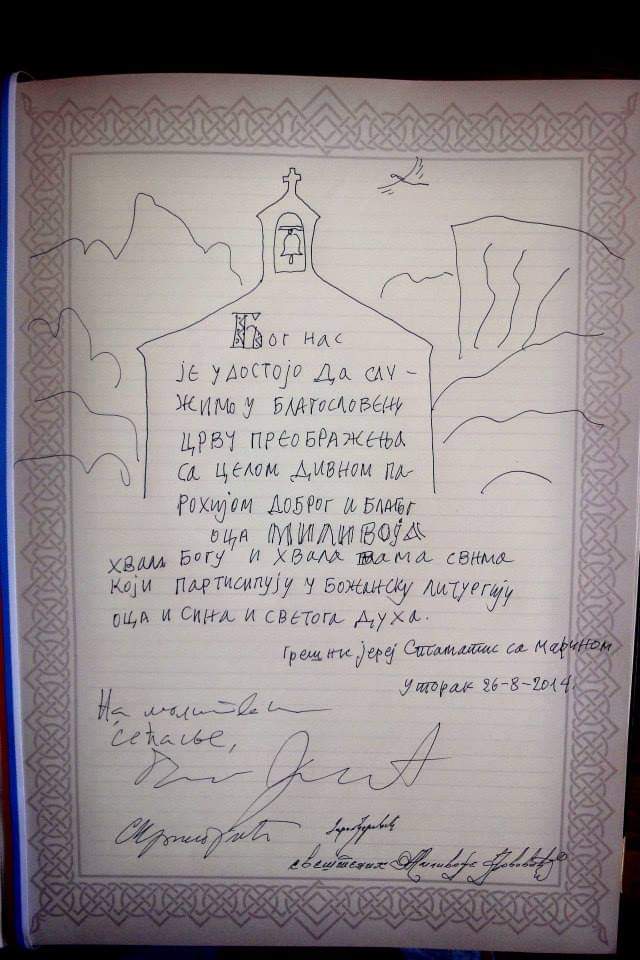 Бог нас
је удостојо да слу-
жимо у благословену
цркву преображења
са целом дивном па-
рохијом доброг и благог
оца Миливоја
хвала Богу и хвала вама свима
који партисипују у божанску литургију
оца и сина и светога духа.
Грешни јереј Стаматис са Марином
Уторак 26-8-2014.
На молитвено
сећање,
свештеник Миливоје